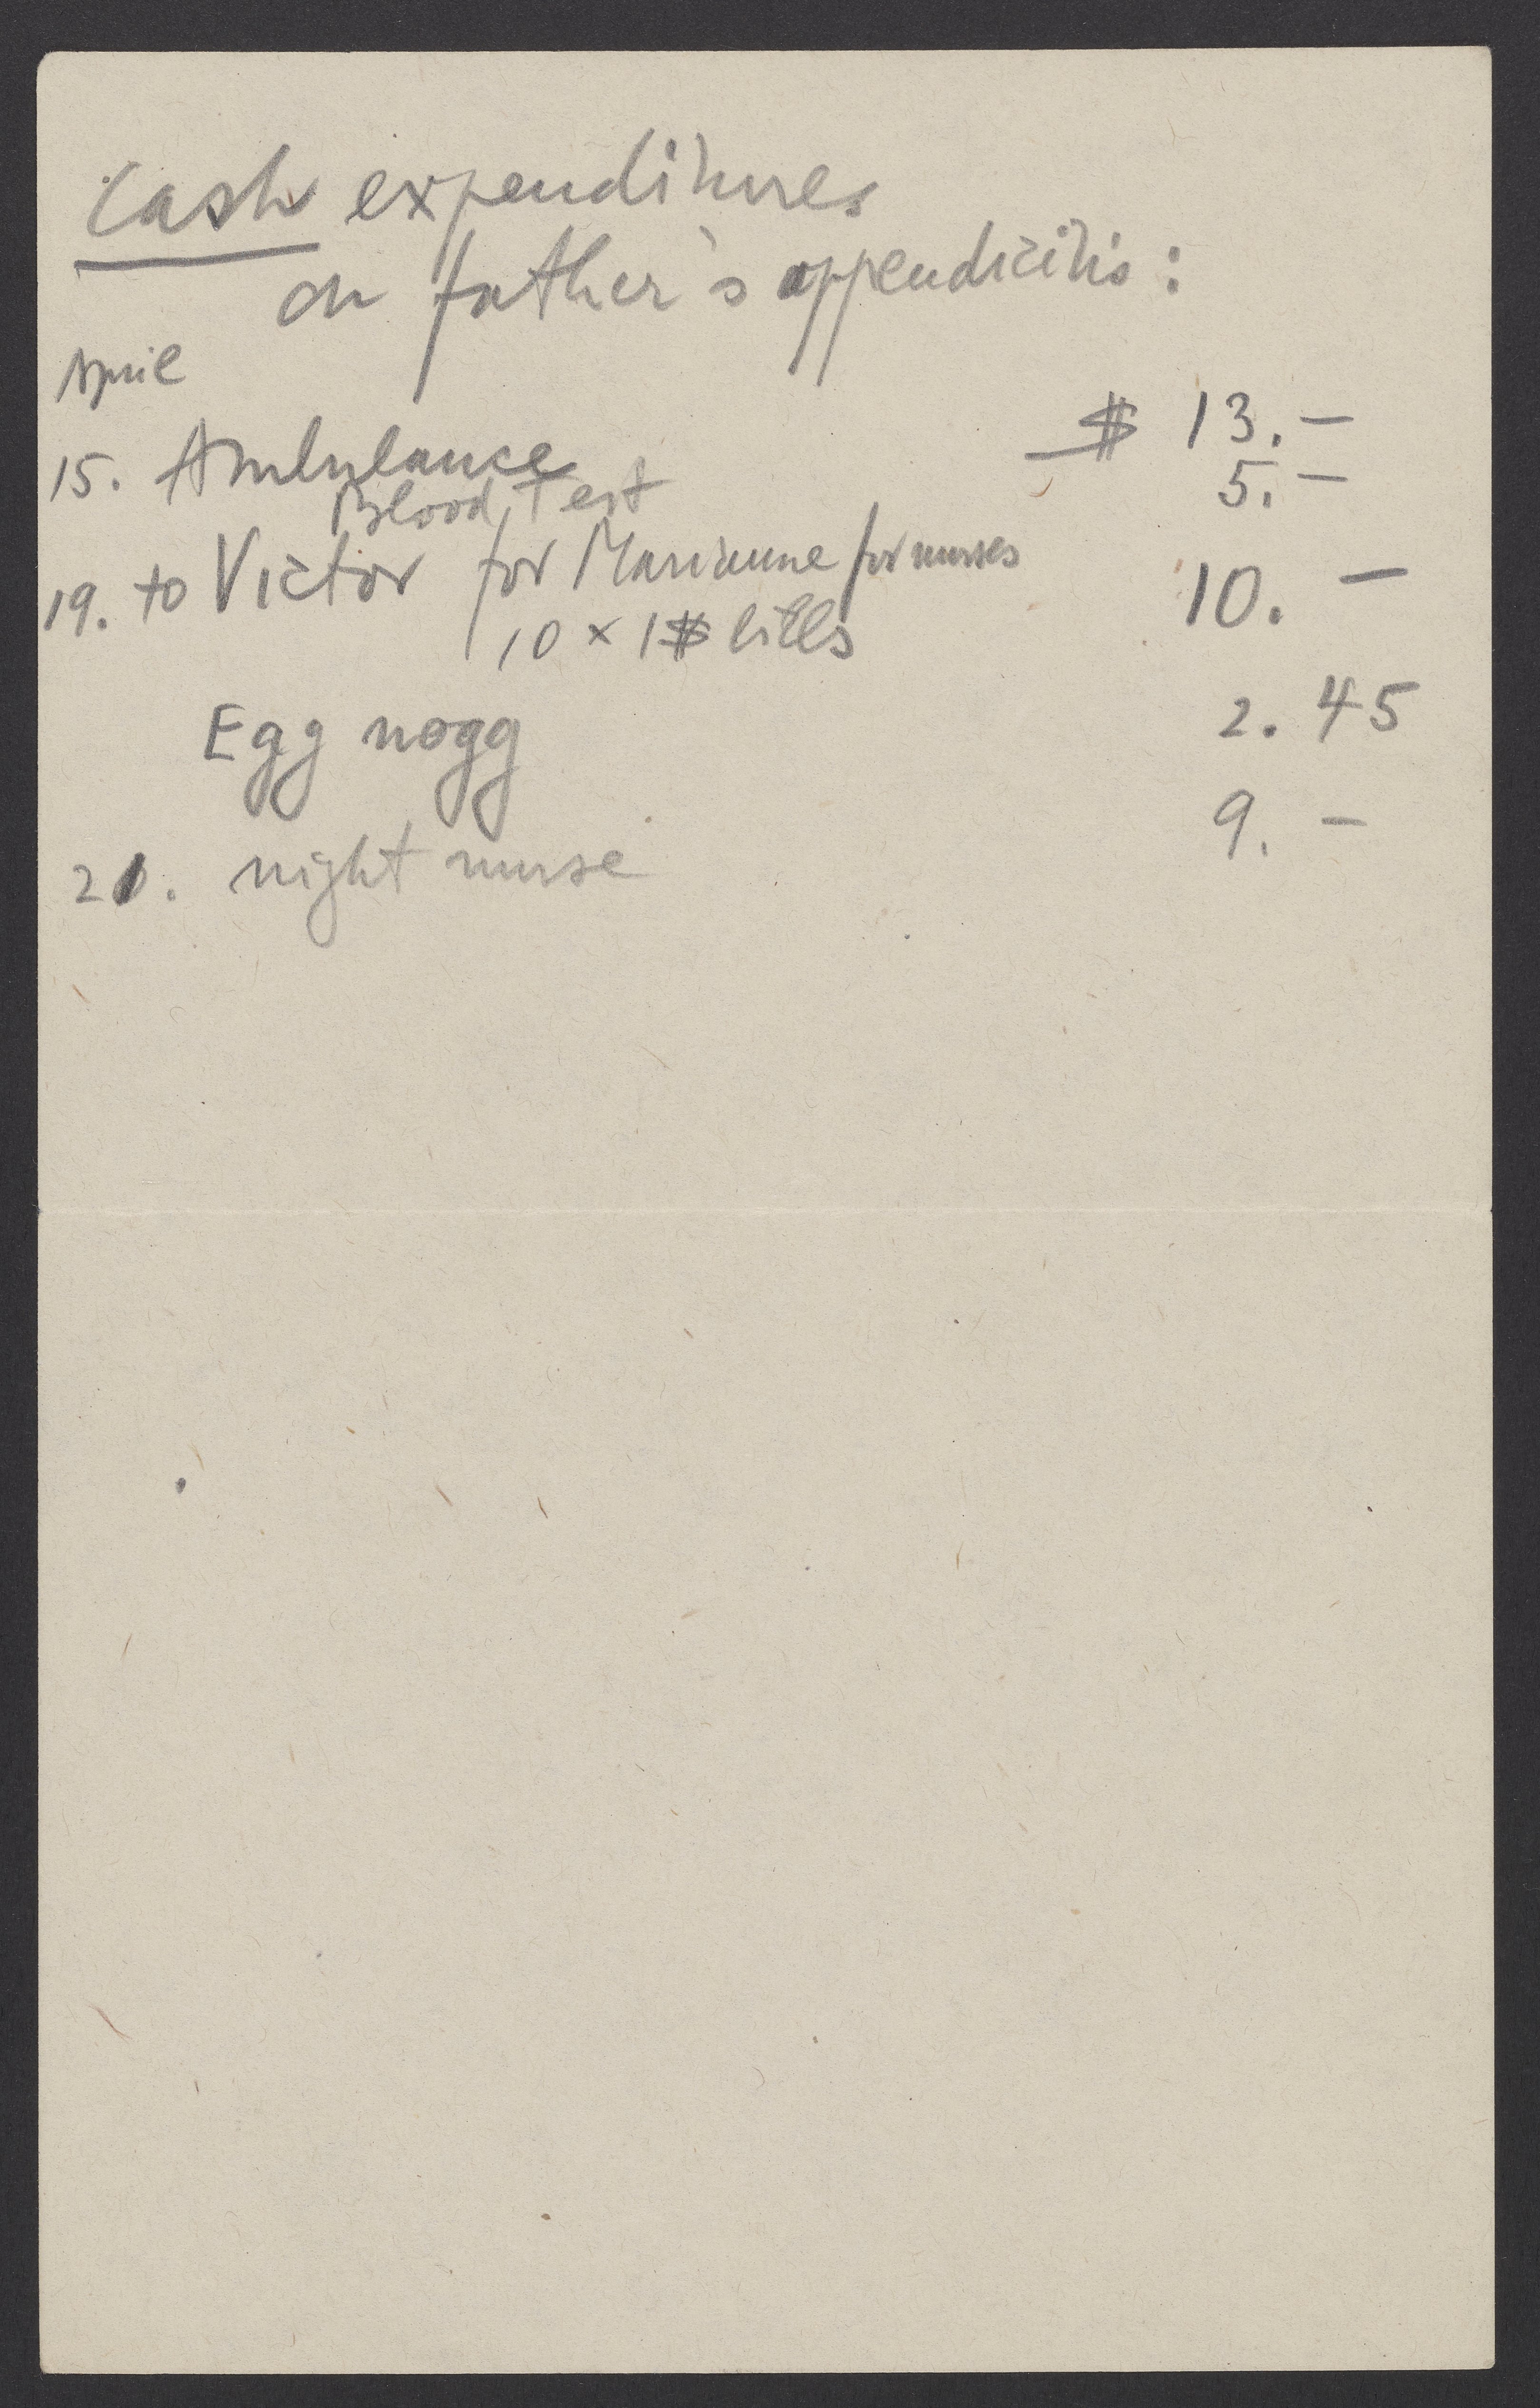 Cash expenditures
on father's appendicitis:
April
15. Ambulance $ 13.—
Blood Test 5.—
19. to Victor for Marianne for nurses 10.—
10 x 1$ bills
Egg nogg 2.45
21. night nurse 9.—